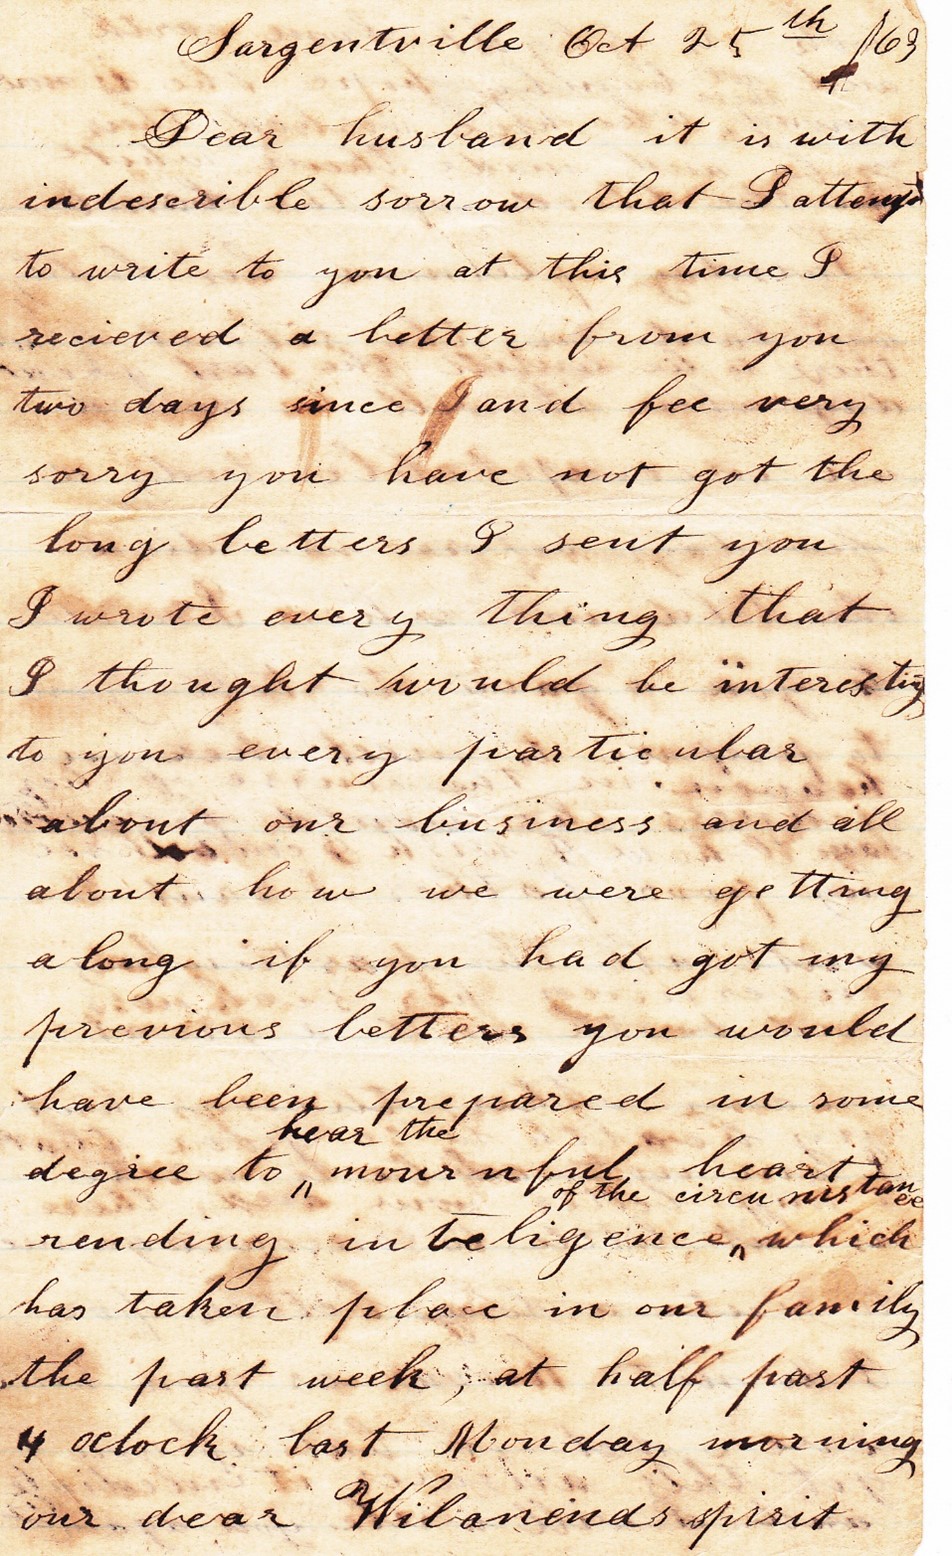 Sargentville Oct 25th /63
Dear husband it is with
indescrible sorrow that I attempt
to write to you at this time I
recieved a letter from you
two days since I and fee very
sorry you have not got the
long letters I sent you
I wrote every thing that
I thought would be interesting
to you every particular
about our business and all
about how we were getting
along if you had got my
previous letters you would
have been prepared in some
hear the
degree to " mournful heart
of the circumstance
rending inteligence " which
has taken place in our family
the past week, at half past
4 oclock last Monday morning
our dear spirit